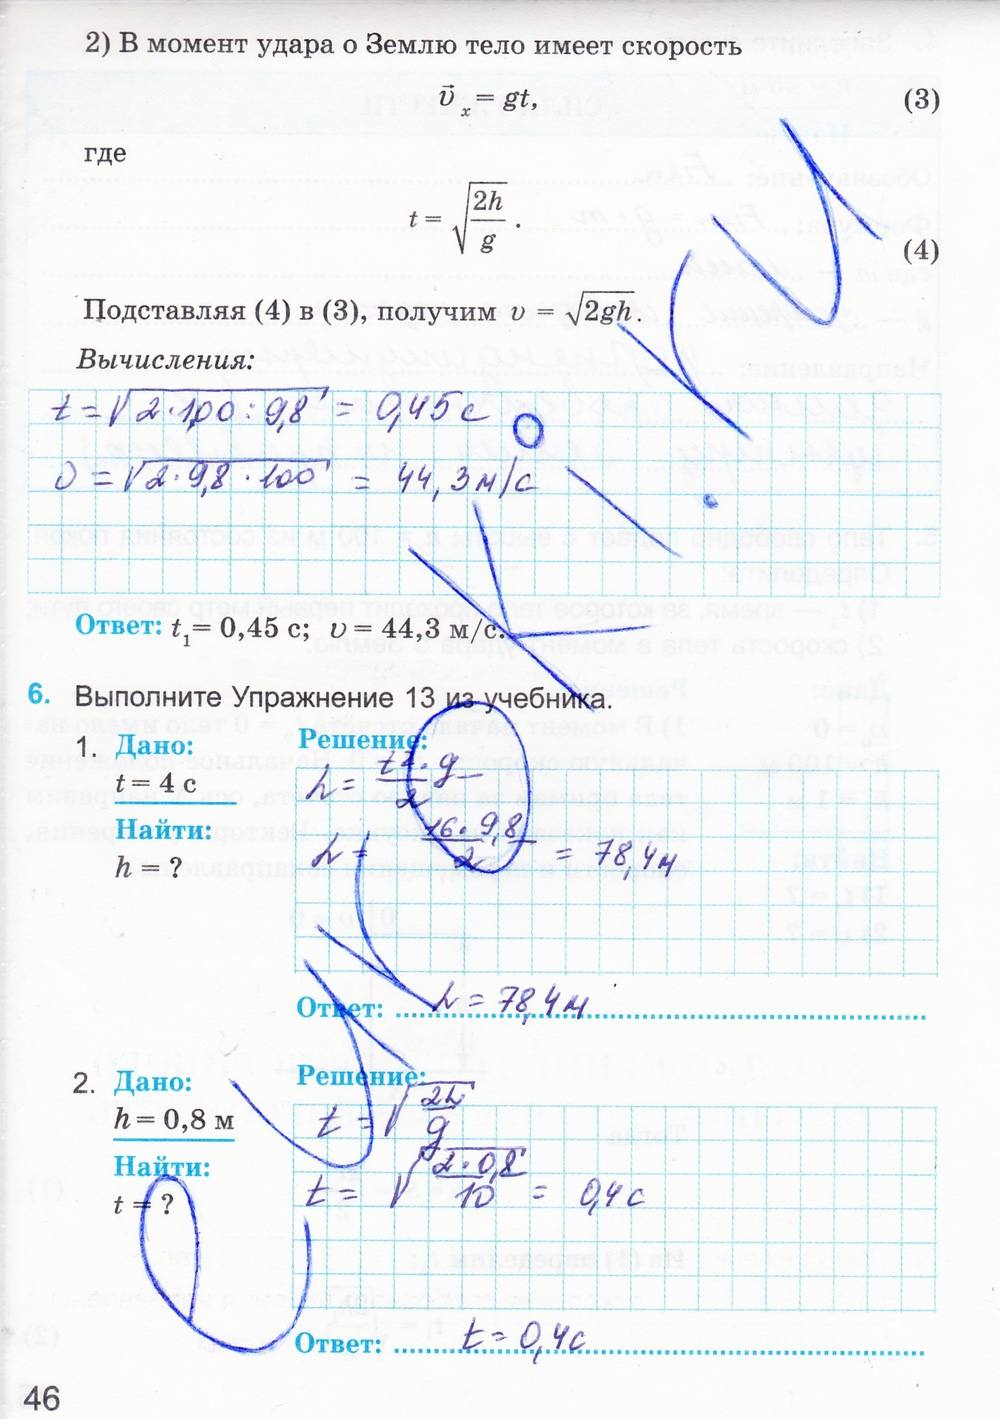 2) В момент удара о Землю тело имеет скорость
v⃗ₓ = gt, (3)
где
t = √(2h/g). (4)
Подставляя (4) в (3), получим v = √2gh.
Вычисления:
t = √2·1,00 : 9,8 = 0,45 с
υ = √2·9,8·100 = 44,3 м/с
Ответ: t₁ = 0,45 с; v = 44,3 м/с.
6. Выполните Упражнение 13 из учебника.
1. Дано: Решение:
t = 4 с
h = t²·g / 2
Найти:
h = 16·9,8 / 2 = 78,4 м
h = ?
Ответ: h = 78,4 м
2. Дано: Решение:
h = 0,8 м
t = √(2h/g)
Найти:
t = √(2·0,8/10) = 0,4 с
t = ?
Ответ: t = 0,4 с
46